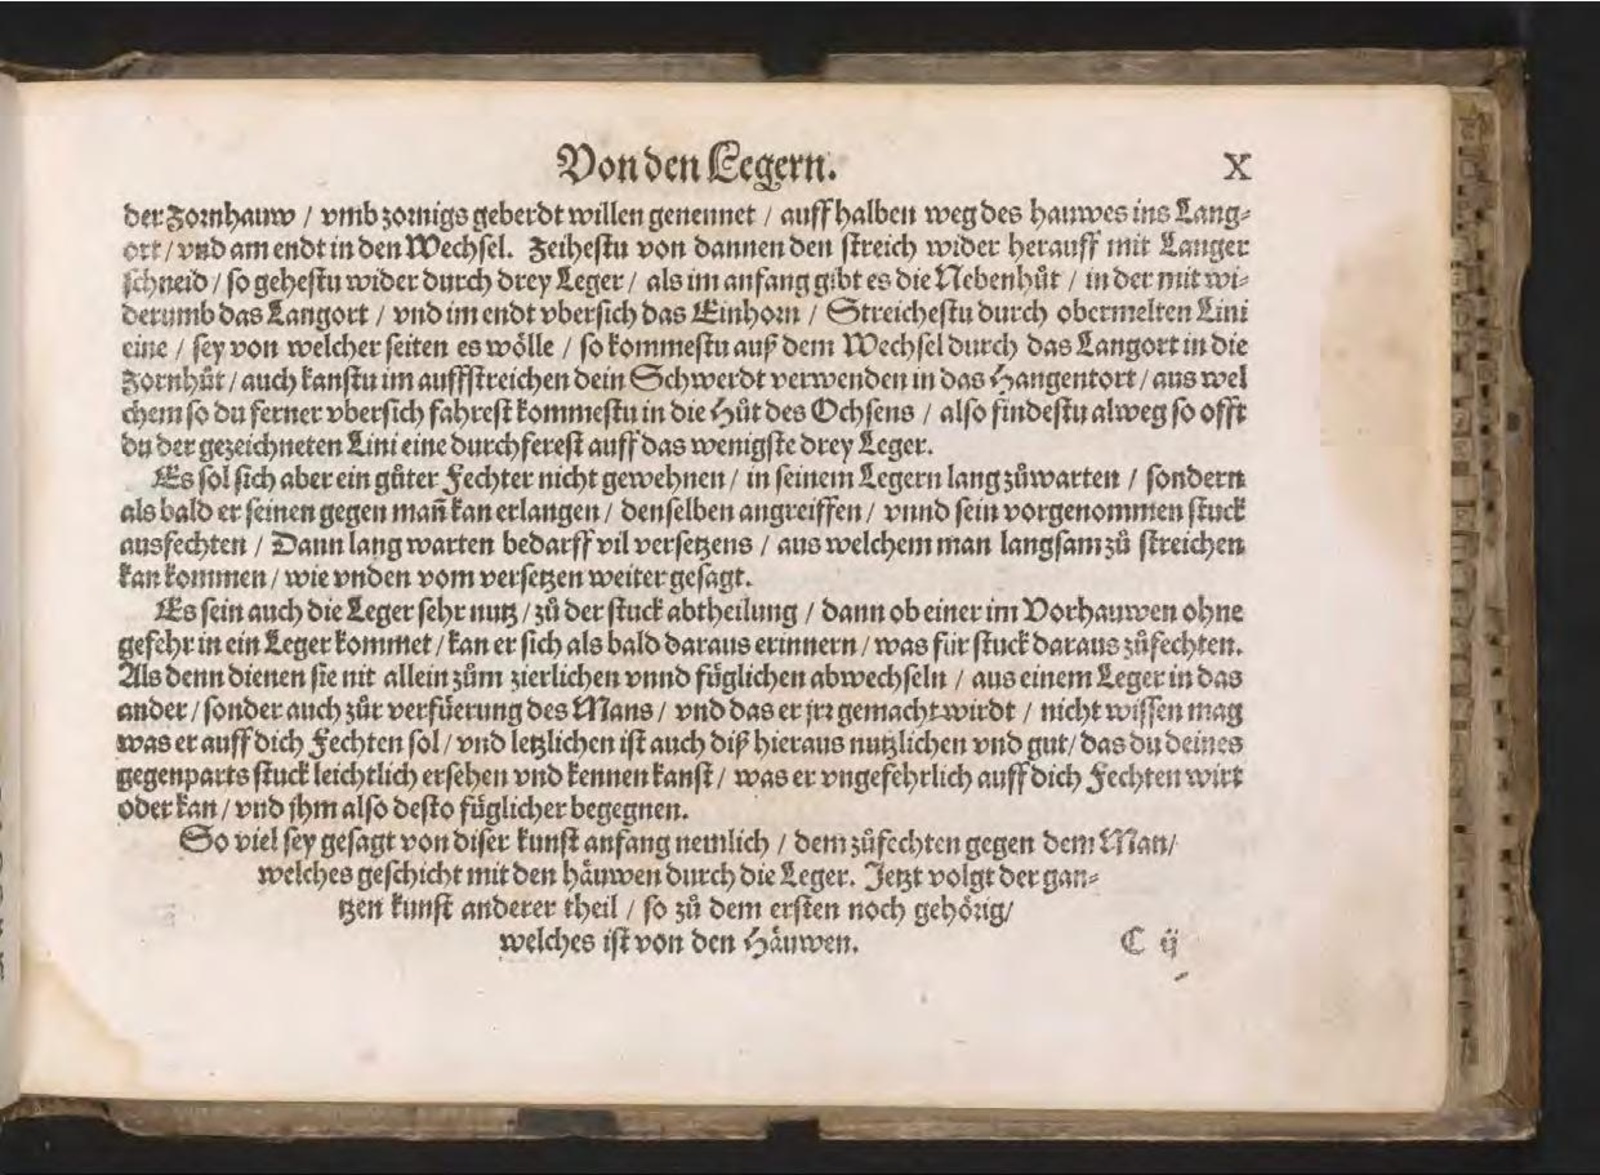 Von den Legern.
X
der Zornhauw / vmb zornigs geberdt willen genennet / auff halben weg des hauwes ins Lang⸗
ort / vnd am endt in den Wechsel. Zeihestu von dannen den streich wider herauff mit Langer
schneid / so gehestu wider durch drey Leger / als im anfang gibt es die Nebenhůt / in der mit wi⸗
derumb das Langort / vnd im endt vbersich das Einhorn / Streichestu durch obermelten Lini
eine / sey von welcher seiten es wölle / so kommestu auß dem Wechsel durch das Langort in die
Zornhůt / auch kanstu im auffstreichen dein Schwerdt verwenden in das Hangentort / aus wel
chem so du ferner vbersich fahrest kommestu in die Hůt des Ochsens / also findestu alweg so offt
du der gezeichneten Lini eine durchferest auff das wenigste drey Leger.
Es sol sich aber ein gůter Fechter nicht gewehnen / in seinem Legern lang zůwarten / sondern
als bald er seinen gegen mañ kan erlangen / denselben angreiffen / vnnd sein vorgenommen stuck
ausfechten / Dann lang warten bedarff vil versetzens / aus welchem man langsam zů streichen
kan kommen / wie vnden vom versetzen weiter gesagt.
Es sein auch die Leger sehr nutz / zů der stuck abtheilung / dann ob einer im Vorhauwen ohne
gefehr in ein Leger kommet / kan er sich als bald daraus erinnern / was für stuck daraus zůfechten.
Als denn dienen sie nit allein zům zierlichen vnnd füglichen abwechseln / aus einem Leger in das
ander / sonder auch zůr verfüerung des Mans / vnd das er jrr gemacht wirdt / nicht wissen mag
was er auff dich Fechten sol / vnd letzlichen ist auch diß hieraus nutzlichen vnd gut / das du deines
gegenparts stuck leichtlich ersehen vnd kennen kanst / was er vngefehrlich auff dich Fechten wirt
oder kan / vnd jhm also desto füglicher begegnen.
So viel sey gesagt von diser kunst anfang nemlich / dem zůfechten gegen dem Man /
welches geschicht mit den häuwen durch die Leger. Jetzt volgt der gan⸗
tzen kunst anderer theil / so zů dem ersten noch gehörig /
welches ist von den Häuwen.
C ij